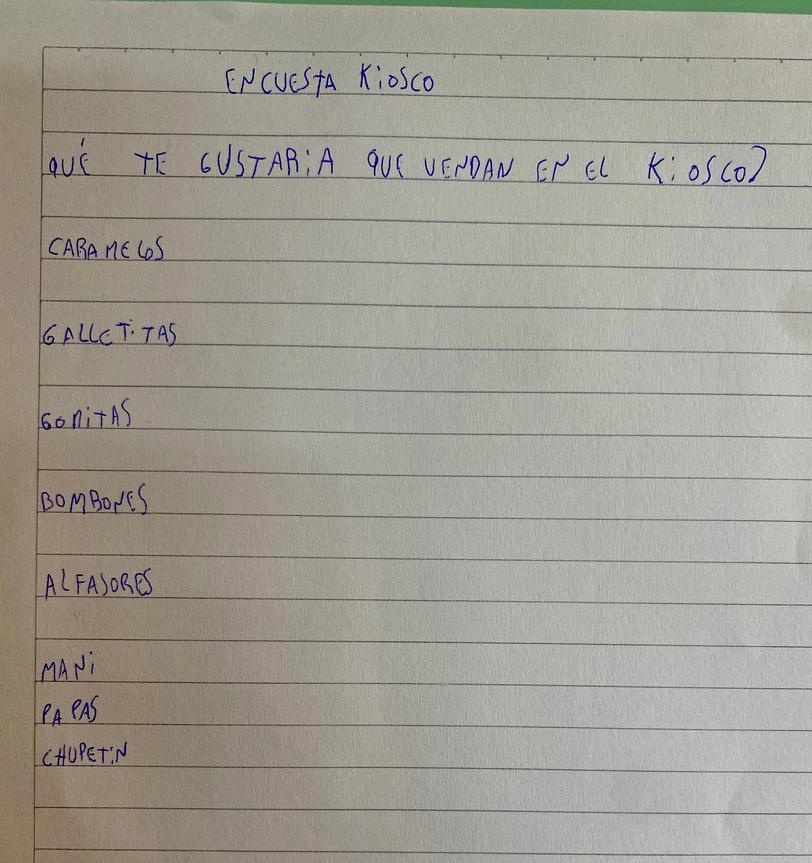 ENCUESTA KiOSCO
QUÉ TE GUSTARiA QUE VENDAN EN EL KiOSCO?
CARAMELOS
GALLETiTAS
GOMiTAS
BOMBONES
ALFAJORES
MANi
PAPAS
CHUPETiN